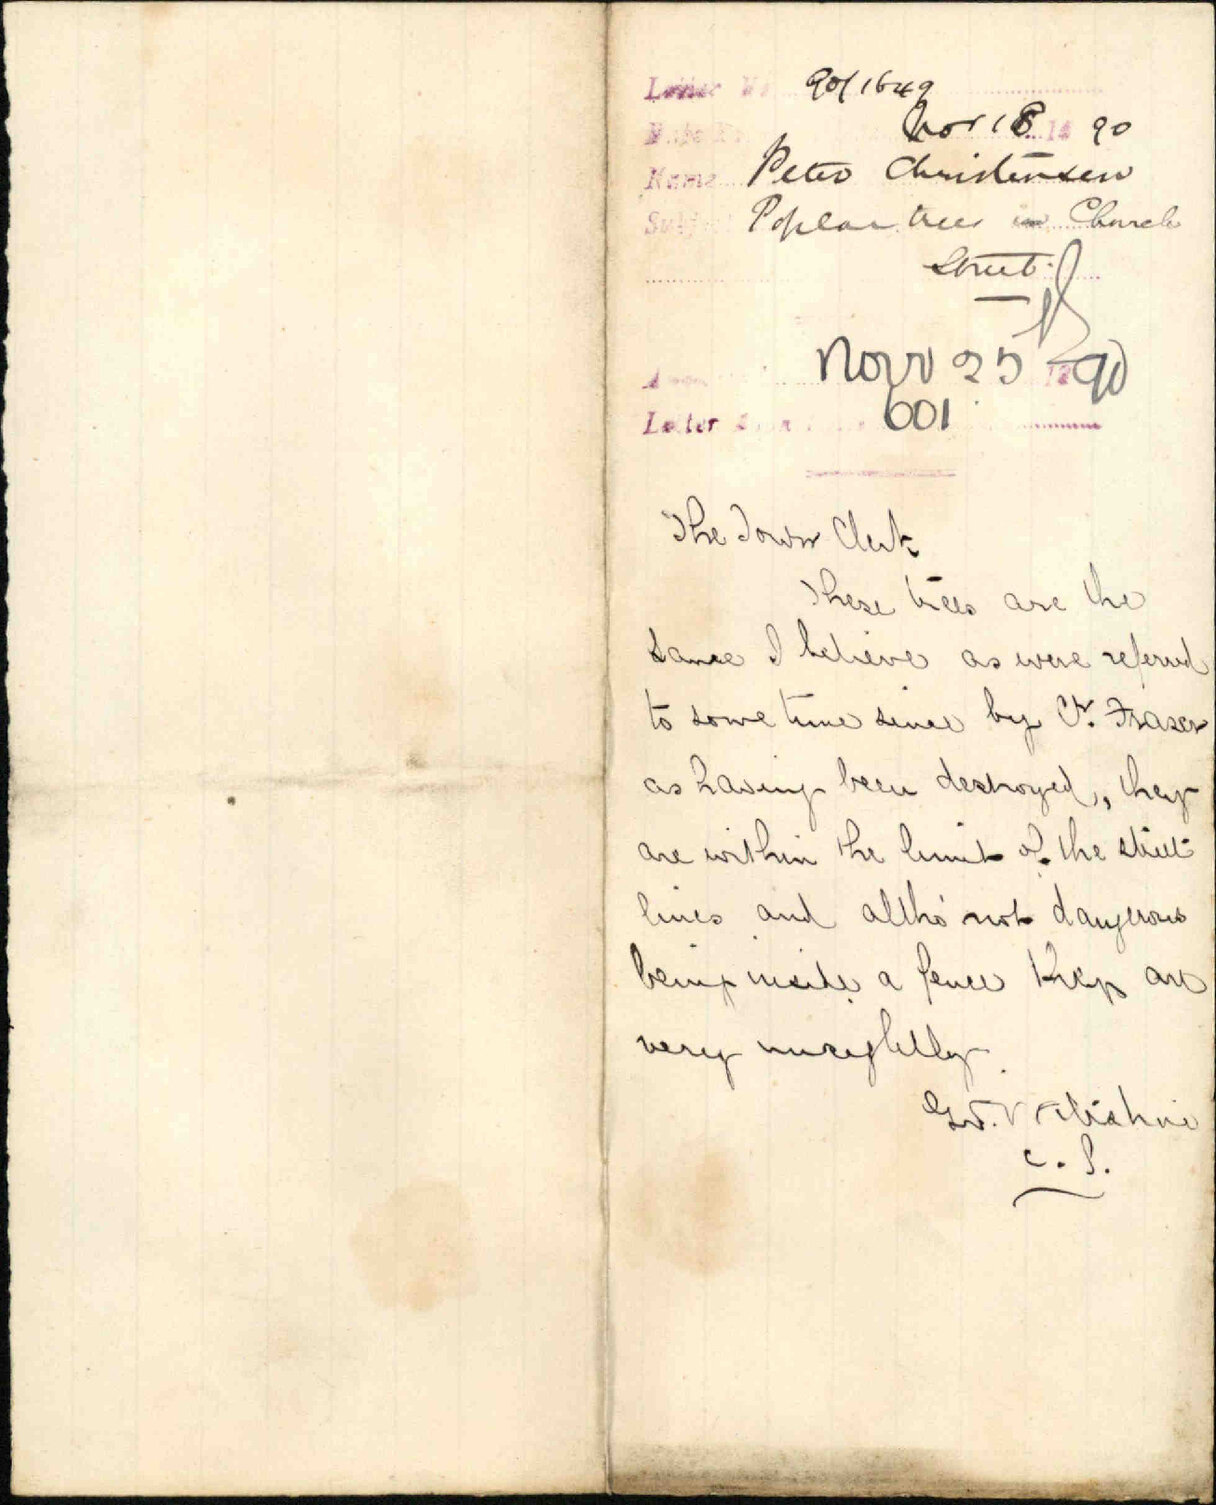 Letter No 90/1649
Nov 18 18 90
Name Peter Christensen
Subject Poplar trees in Church
Street
Novr 25 1890
Letter 601
The Town Clerk
These trees are the
same I believe as were referred
to some time since by Cr. Fraser
as having been destroyed, they
are within the limit of the street
lines and altho' not dangerous
being inside a fence they are
very unsightly
C.S.